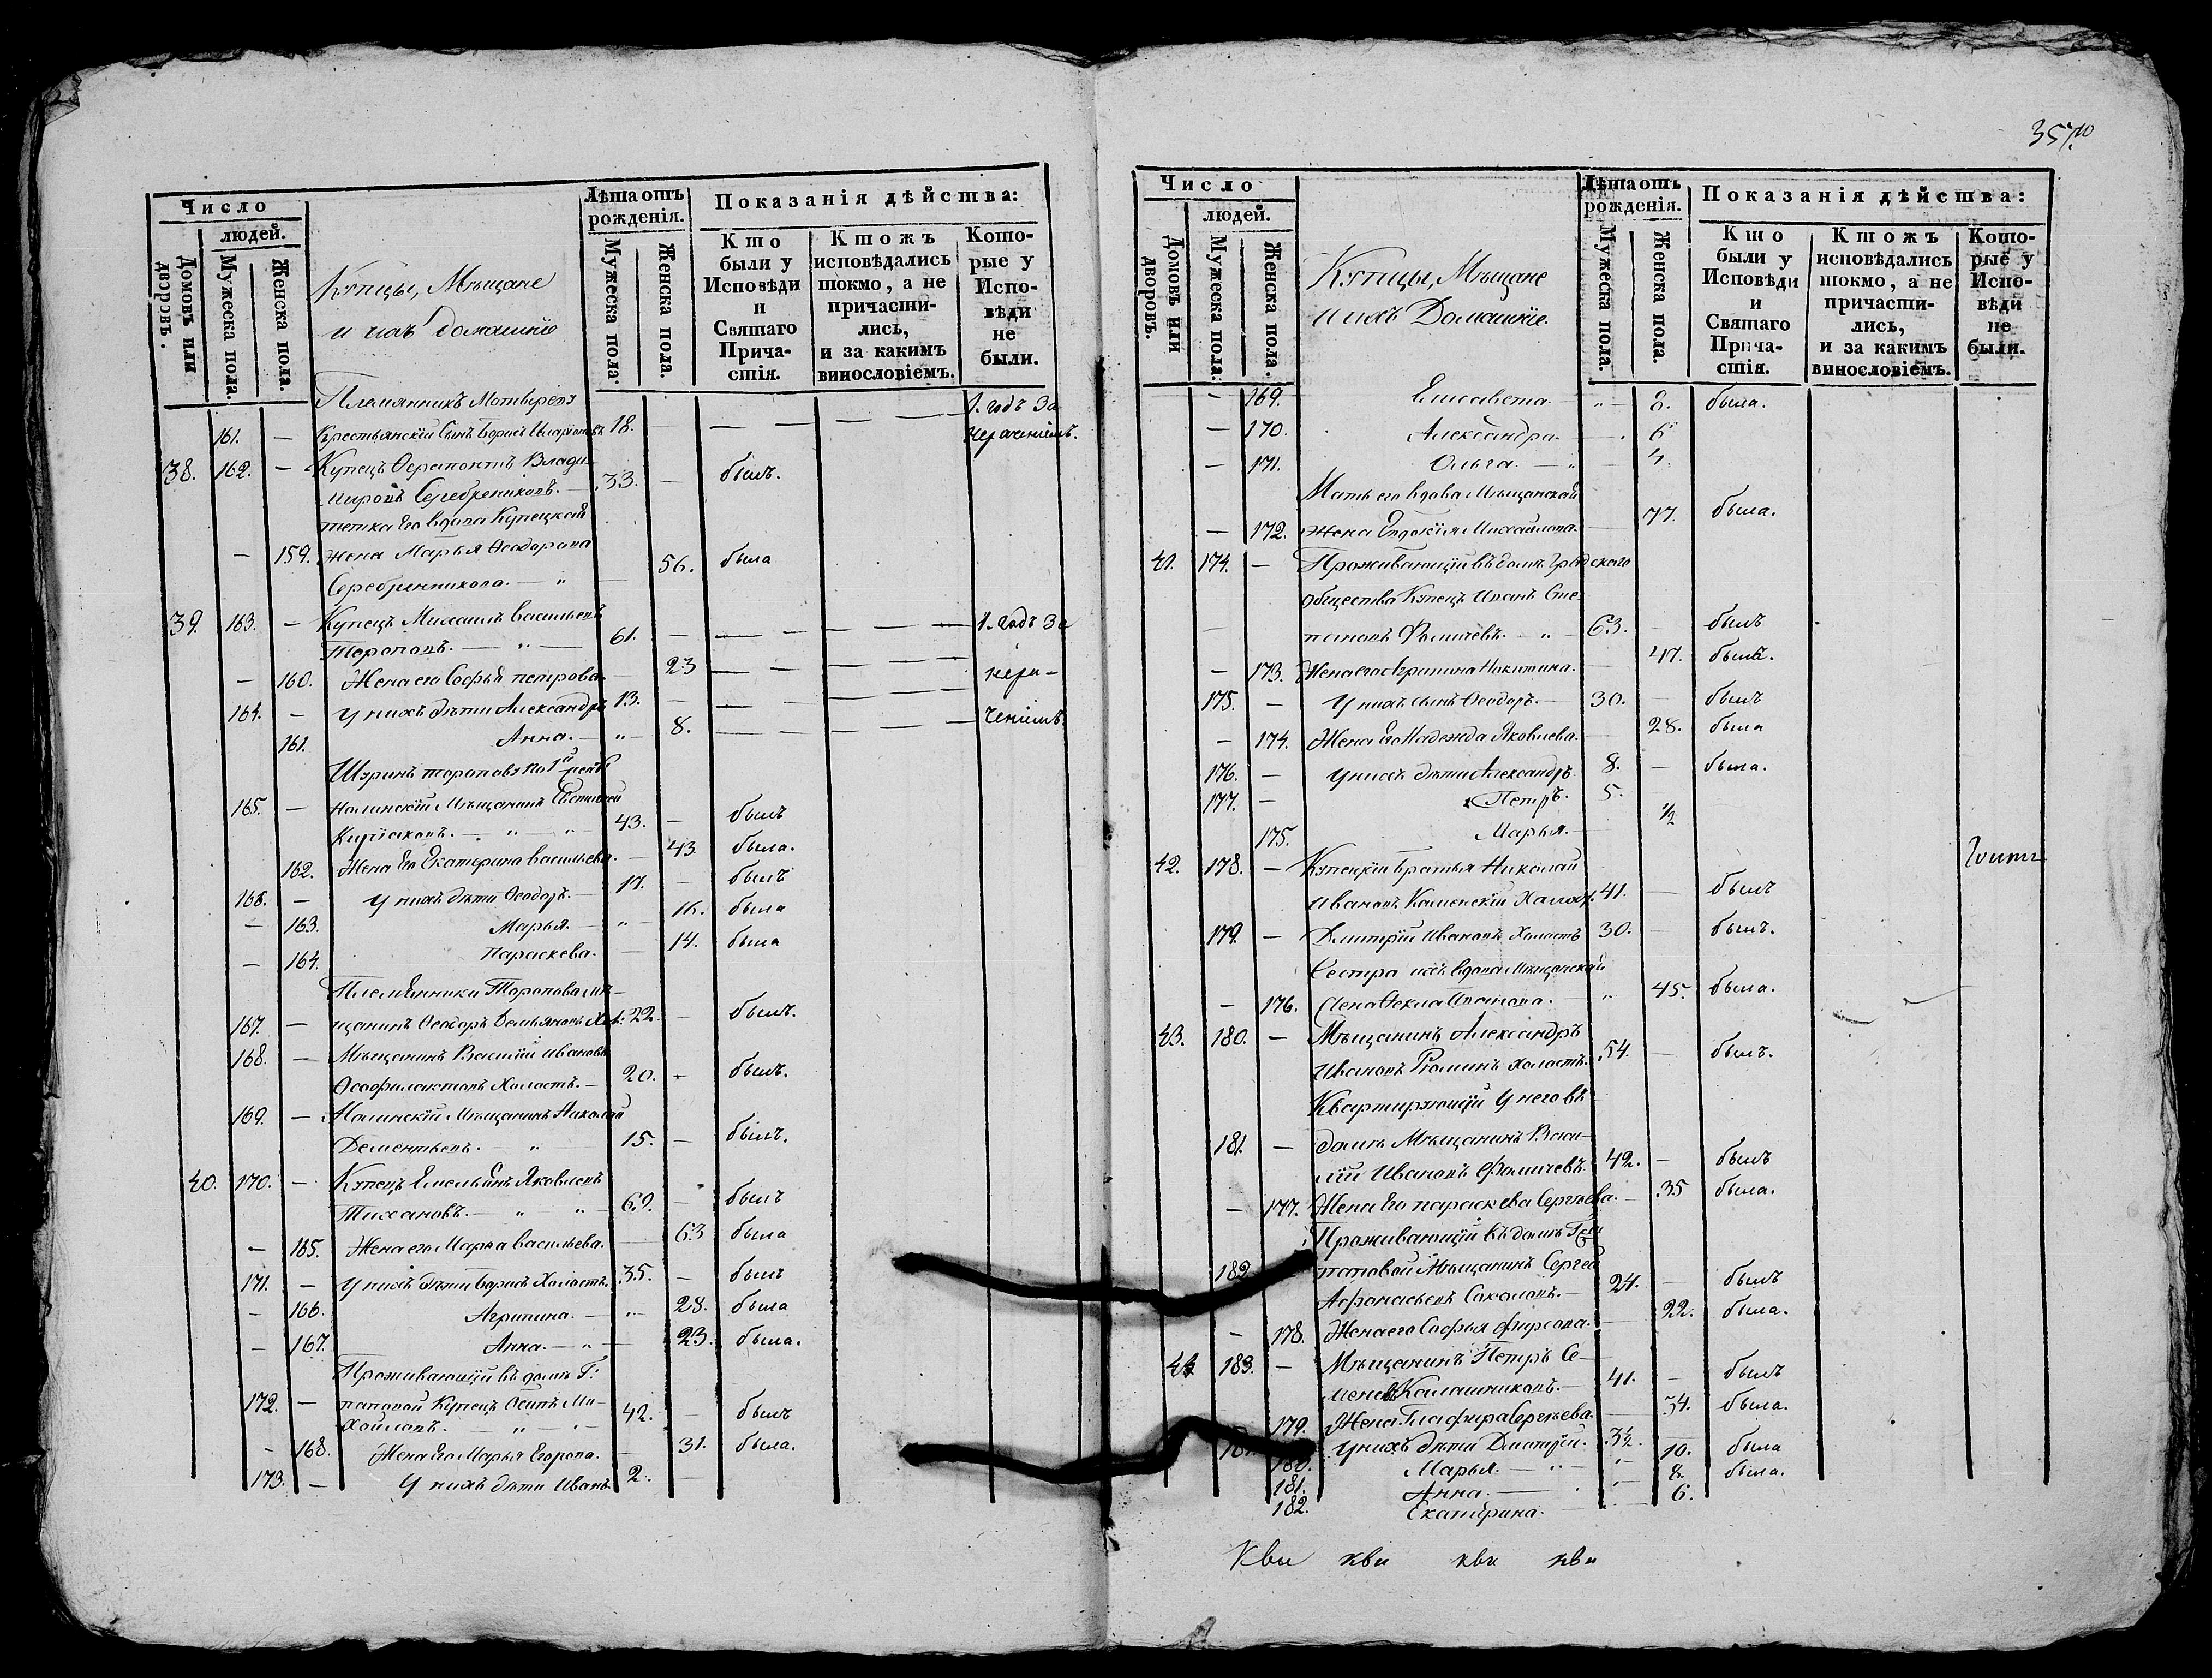 357.
Число
людей.
Домовъ или дворовъ.
Мужеска пола.
Женска пола.
Купцы, Мѣщане
и ихъ домашніе
Лѣта отъ рожденія.
Мужеска пола.
Женска пола.
Показанія дѣйства:
Кто были у Исповѣди и Святаго Причастія.
Ктожъ исповѣдались токмо, а не причастились, и за какимъ винословіемъ.
Которые у Исповѣди не были.
Племянникъ 1. годъ за
161. — Крестьянскій сынъ Борисъ 18. — нераченіемъ.
38. 162. — Купецъ Ферапонтъ Влади-
мировъ Серебрениковъ. — 33. — былъ.
тетка его вдова Купецкая
— 159. жена Марья Ѳеодорова 56. была
Серебренникова. — " —
39. 163. — Купецъ Михаилъ Васильевъ 1. годъ за
Тороповъ. — " — 61. —
— 160. Жена его Софья Петрова — 23 нера-
164. — У нихъ дѣти Александръ 13. —
161. Анна. — " — 8. ченіемъ.
Шуринъ Торопова
165. — Нолинскій Мѣщанинъ
Киріаковъ. — " — " 43. — былъ
162. Жена Его Екатерина Васильева. — 43. была.
166. — У нихъ дѣти Ѳеодоръ. — 17. — былъ
— 163. Марья. — " — 16. была
— 164. Параскева. — 14. была
Племянники Торопова мѣ-
167. — щанинъ Ѳеодоръ Демьяновъ Хол: 22. — былъ.
168. — Мѣщанинъ Василій Ивановъ
Ѳеофилактовъ Холостъ. — 20. — былъ.
169. — Нолинскій Мѣщанинъ Николай
Дементьевъ. — " — 15. — былъ.
40. 170. — Купецъ Емельянъ Яковлевъ
Тихановъ. — " " — 69. — былъ
— 165. Жена его Марѳа Васильева. — 63 была
171. — У нихъ дѣти Борисъ Холостъ. 35. — былъ
— 166. Агрипина. — " — 28. была
— 167. Анна. — " — 23. была.
Проживающій въ домѣ Г:
172. — повой Купецъ Осипъ Ми-
хайловъ. — " — 42. — былъ
— 168. Жена Его Марья Егорова. — 31. была.
173. — У нихъ дѣти Иванъ. 2. —
Число
людей.
Домовъ или дворовъ.
Мужеска пола.
Женска пола.
Купцы, Мѣщане
и ихъ Домашніе.
Лѣта отъ рожденія.
Мужеска пола.
Женска пола.
Показанія дѣйства:
Кто были у Исповѣди и Святаго Причастія.
Ктожъ исповѣдались токмо, а не причастились, и за какимъ винословіемъ.
Которые у Исповѣди не были.
— 169. Елисавета. — " — 8. была.
— 170. Александра. — 6
— 171. Ольга. — " — 4.
Мать его вдова Мѣщанская
— 172. жена Евдокія Михайлова. — 77. была.
41. 174. — Проживающій въ домѣ Градскаго
общества Купецъ Иванъ Сте-
пановъ Фомичевъ. — " — 63. — былъ
— 173. Жена его Агрипина Никитина. — 47. была.
175. — У нихъ сынъ Ѳеодоръ. — 30. — былъ
— 174. Жена Его Надежда Яковлева. — 28. была
176. — У нихъ дѣти Александръ. 8. — была.
177. — Петръ. 5. —
175. Марья. — 1/2
42. 178. — Купецкіи Братья Николай
Ивановъ Каменскій Холост. 41. — былъ
179. — Дмитрій Ивановъ Холостъ 30. — былъ.
Сестра ихъ вдова Мѣщанская
— 176. Жена Ѳекла Иванова. — " 45. была.
43. 180. — Мѣщанинъ Александръ
Ивановъ Холостъ. 54. — былъ.
Квартирующій у него въ
181. — домѣ Мѣщанинъ Васи-
лій Ивановъ Фомичевъ. 42. — былъ
— 177. Жена Его Параскева Сергѣева. — 35 была.
Проживающій въ домѣ
182 поповой Мѣщанинъ Сергей
Афонасьевъ Соколовъ. — 24. — былъ
— 178. Жена его Софья Фирсова. — 22. была.
44 183. — Мѣщанинъ Петръ Се-
меновъ Калашниковъ. — 41. — былъ
179. Жена Глафира Сергѣева. — 34. была.
У нихъ дѣти Дмитрій. 3½.
180. Марья. — " — 10. была
181. Анна. — 8. была.
182. Екатерина. 6.
Кви кви кви кви